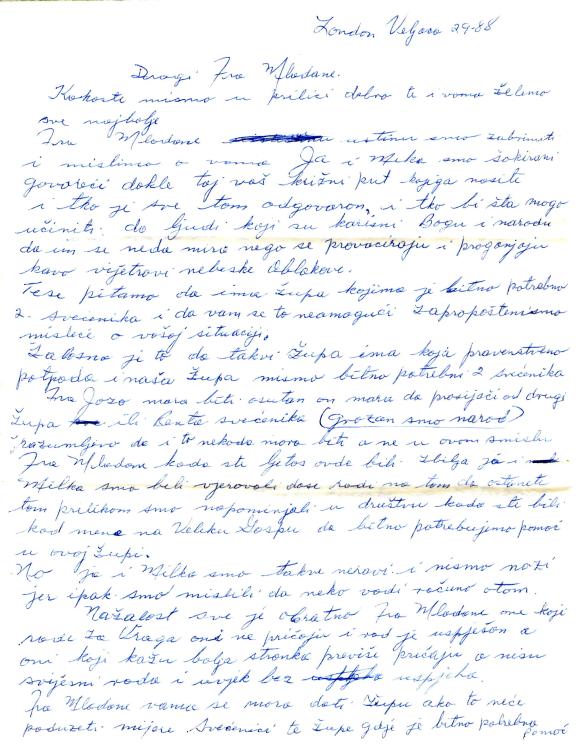 London Veljaca 29-88
Dragi Fra Mladane.
Kakoste mismo u prilici dobro te i vama želimo
sve najbolje
Fra Mladane ustinu smo zabrinuti
i mislimo o vama Ja i Milka smo šokirani
govoreći dokle taj vaš križni put kojga nosite
i tko je sve tom odgovoran, i tko bi šta mogo
učiniti. da ljudi koji su karisni Bogu i narodu
da im se neda mira nego se provociraju i proganjaju
kavo vijetrovi nebeske Oblakove.
Tese pitamo da ima župa kojima je bitno potrebno
2. svecenika i da vam se to neamagući zaprepoštenismo
misleći o vašoj situaciji.
Žalosno je to da takvi župa ima koja pravenstveno
potpada i naša župa mismo bitno potrebni 2 svećenika
Fra Jozo mora biti osutan on mora da prosijaći od drugi
župa ili hanta svećenika (grozan smo narod)
razumljevo da i to nekada mora biti a ne u ovom smislu
Fra Mladane kada ste ljetos ovde bili zbilja ja i
Milka smo bili vjerovali dase radi na tom da ostanite
tom prilikom smo napominjali u društvu kada ste bili
kod mene na Veliku Gospu da bitno potrebujemo pomoć
u ovoj župi.
No ja i Milka smo takve neravi i nismo nozi
jer ipak smo mislili da neko vodi računo otom.
Nažalost sve je obratno Fra Mladane one koji
rade za Vraga oni ne pričaju i rad je uspješan a
oni koji kažu bolja stranka previše pričaju a nisu
svijesni rada i uvjek bez uspjeha.
Fra Mladane vama se mora dati župu ako to neće
poduzeti mijere. Svećenici te župe gdje je bitno potrebna
pomoć